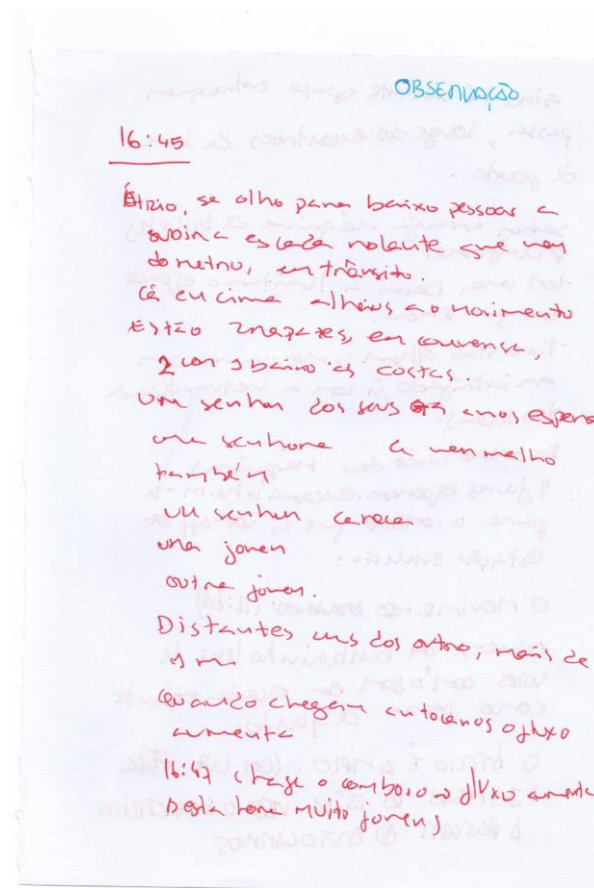 OBSERVAÇÃO
16:45
Átrio, se olho para baixo pessoas a
subir a escada rolante que vem
do metro, em trânsito.
Cá em cima alheias ao movimento
Estão rapazes, em conversa,
2 com as costas.
Um senhor dos seus anos espera
uma senhora de vermelho
também
um senhor careca
uma jovem
outra jovem.
Distantes uns dos outro, mais de
Quando chegam autocarros o fluxo
aumenta.
16:47 chega o comboio o fluxo aumenta
desta vez muito jovens